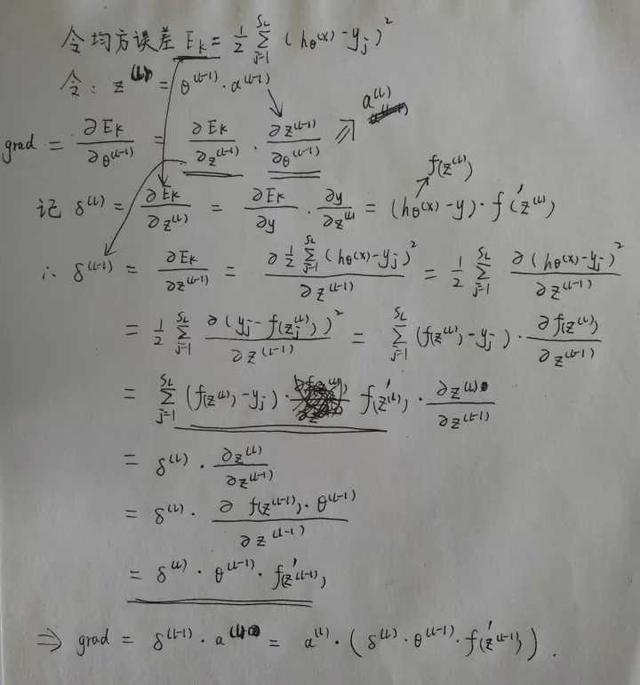 令均方误差 E_k = 1/2 Σ_{j=1}^{S_L} (h_θ(x) - y_j)^2
令: z^(L) = θ^(L-1) · a^(L-1)
a^(L)
grad = ∂E_k/∂θ^(L-1) = ∂E_k/∂z^(L-1) · ∂z^(L-1)/∂θ^(L-1) ⇒
f(z^(L))
记 δ^(L) = ∂E_k/∂z^(L) = ∂E_k/∂y · ∂y/∂z^(L) = (h_θ(x) - y) · f'(z^(L))
∴ δ^(L-1) = ∂E_k/∂z^(L-1) = ∂ 1/2 Σ_{j=1}^{S_L} (h_θ(x) - y_j)^2 / ∂z^(L-1) = 1/2 Σ_{j=1}^{S_L} ∂(h_θ(x) - y_j)^2/∂z^(L-1)
= 1/2 Σ_{j=1}^{S_L} ∂(y_j - f(z_j^(L)))^2/∂z^(L-1) = Σ_{j=1}^{S_L} (f(z^(L)) - y_j) · ∂f(z^(L))/∂z^(L-1)
= Σ_{j=1}^{S_L} (f(z^(L)) - y_j) · f'(z^(L)) · ∂z^(L)/∂z^(L-1)
= δ^(L) · ∂z^(L)/∂z^(L-1)
= δ^(L) · ∂ f(z^(L-1)) · θ^(L-1)/∂z^(L-1)
= δ^(L) · θ^(L-1) · f'(z^(L-1))
⇒ grad = δ^(L-1) · a^(L) = a^(L) · (δ^(L) · θ^(L-1) · f'(z^(L-1))).